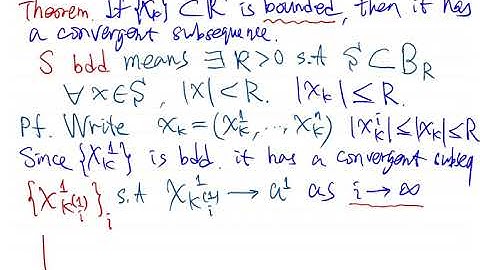 Theorem. If {x_k} ⊂ R^n is bounded, then it has
a convergent subsequence.
S bdd means ∃ R>0 s.t S ⊂ B_R
∀ x∈S, |x|<R. |x_k| ≤ R.
Pf. Write x_k = (x_k^1, ..., x_k^n) |x_k^i| ≤ |x_k| ≤ R
Since {x_k^1} is bdd. it has a convergent subseq
{x^1_{k_i^{(1)}}}_i s.t x^1_{k_i^{(1)}} → a^1 as i → ∞